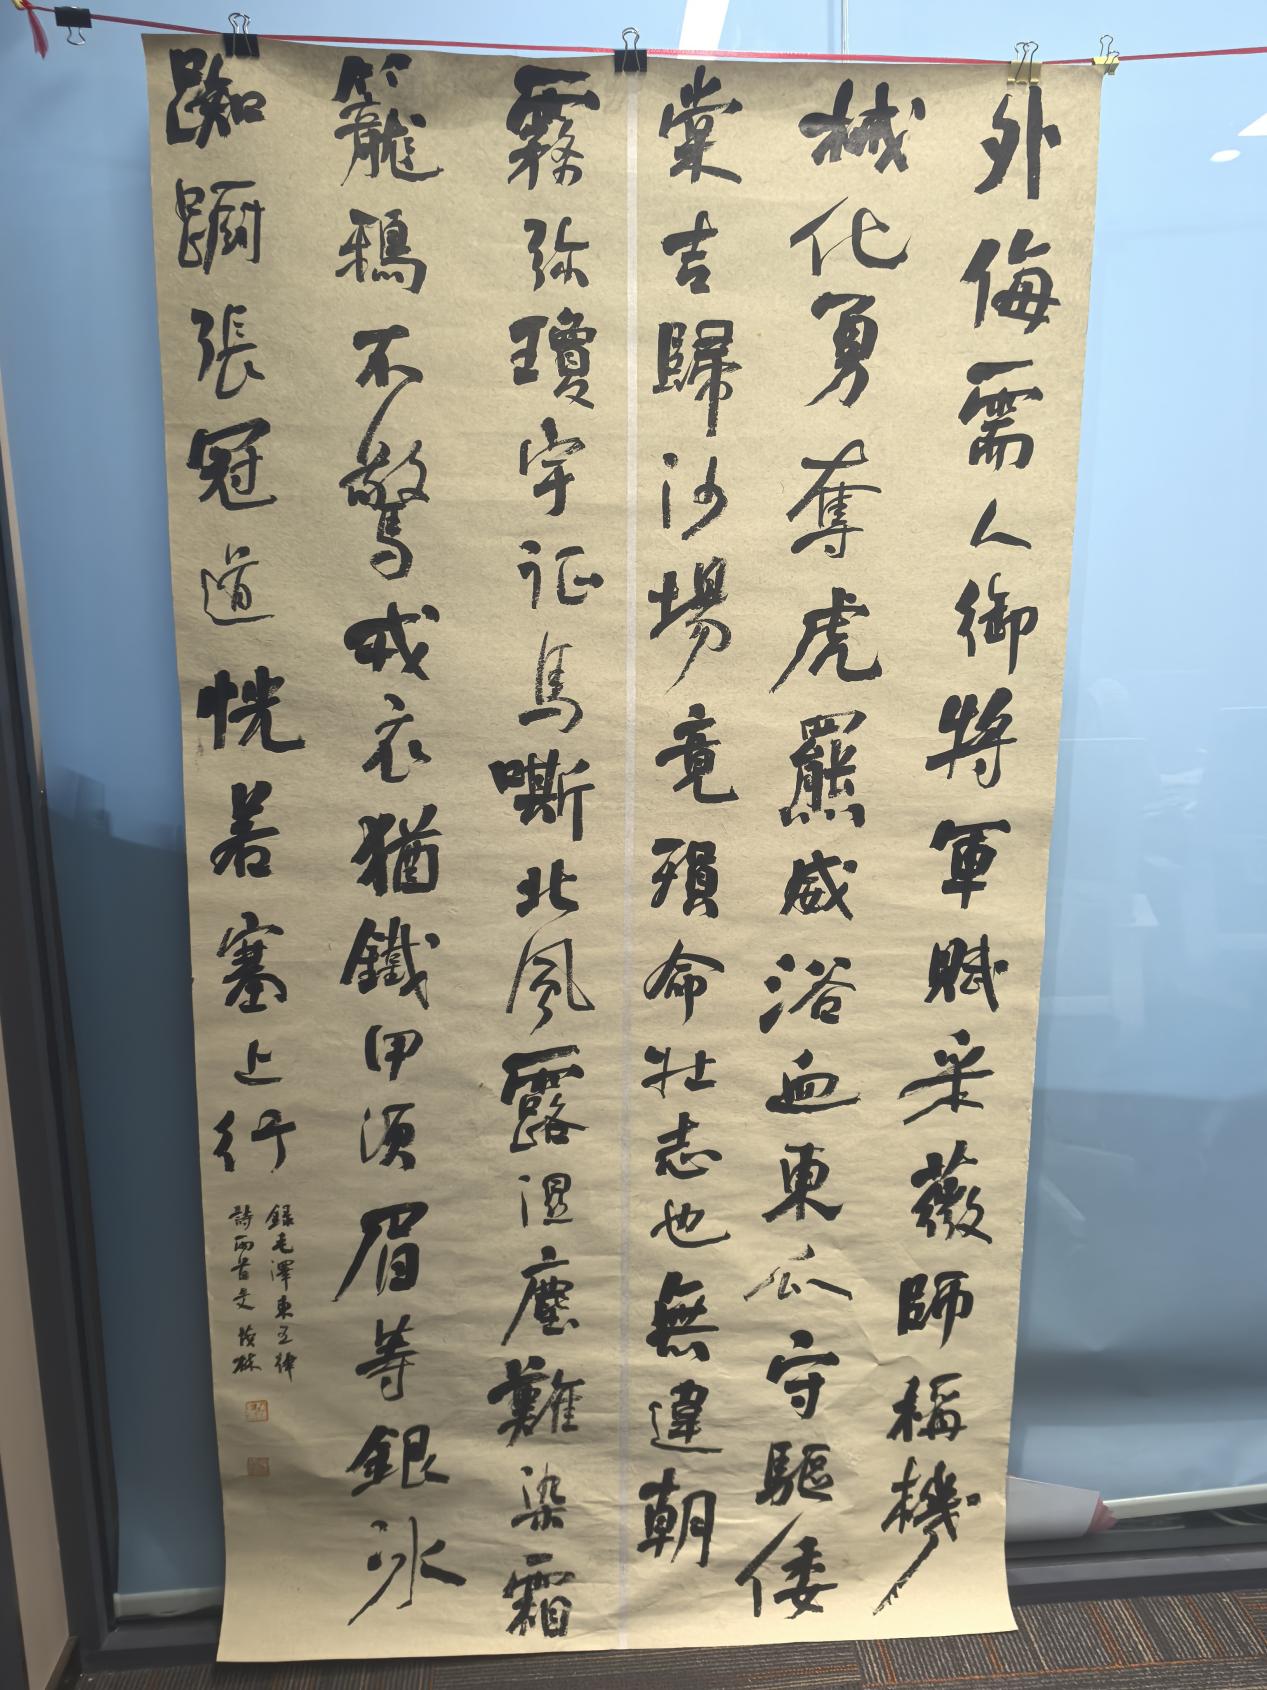 外侮需人御將軍賦采薇師稱機
械化勇奪虎羆威浴血東瓜守驅倭
棠吉歸沙場竟殞命壯志也無違朝
霧弥瓊宇征馬嘶北風露濕塵難染霜
籠鴉不驚戎衣猶鐵甲須眉等銀冰
踟躕張冠道恍若塞上行
録毛澤東五律
詩兩首